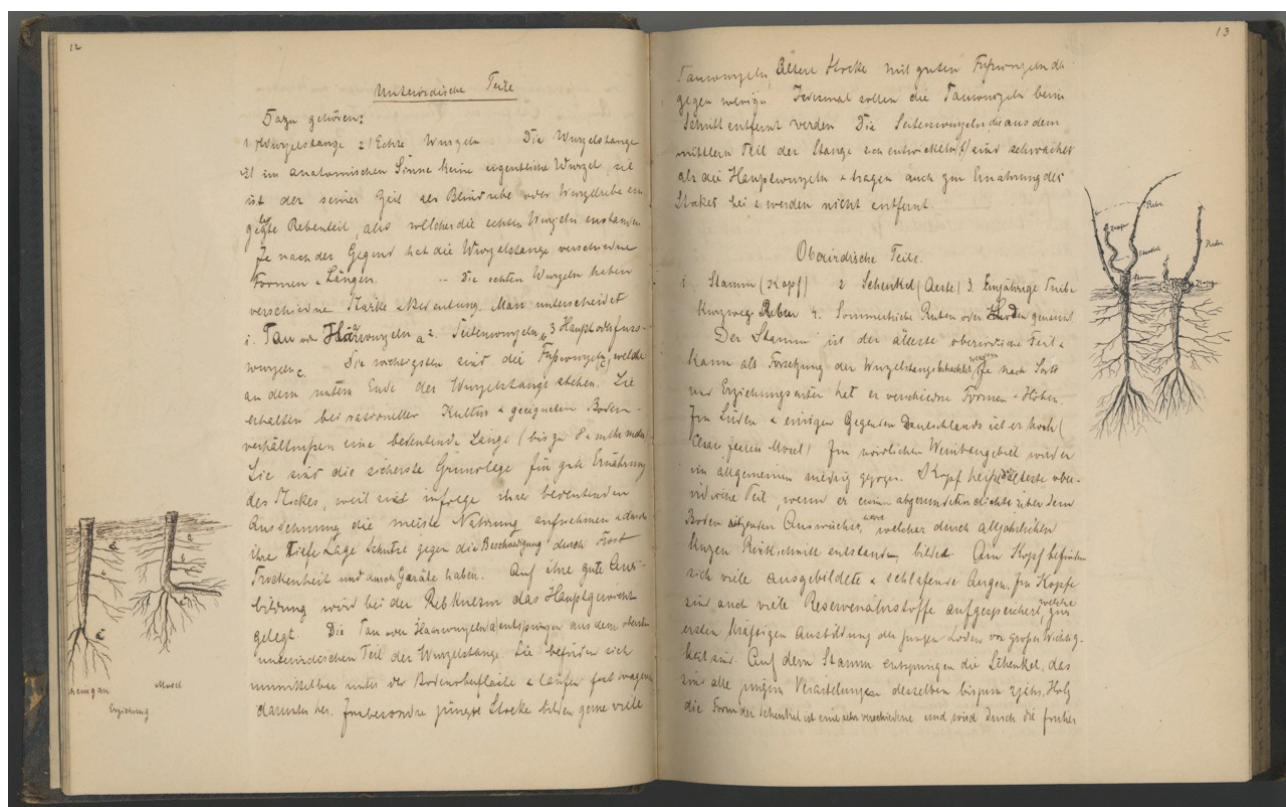 12
Unterirdische Teile
Dazu gehören:
1. Wurzelstange 2) Echte Wurzeln Die Wurzelstange
ist im anatomischen Sinne keine eigentliche Wurzel, sie
ist der seiner Zeit als Blindrebe oder Wurzelrebe ein
gelegte Rebenteil, aus welcher die echten Wurzeln entstanden
Je nach der Gegend hat die Wurzelstange verschiedne
Formen & Längen. Die echten Wurzeln haben
verschiedne Stärke & Bedeutung. Man unterscheidet
1. Tau oder Haarwurzeln a 2. Seitenwurzeln b 3 Haupt oder fuss-
wurzeln c. Die wichtigsten sind die Fußwurzeln c, welche
an dem untern Ende der Wurzelstange stehen. Sie
erhalten bei rationeller Kultur & geeigneten Boden-
verhältnißen eine bedeutende Länge (bis zu 8 & mehr meter)
Sie sind die sicherste Grundlage für gute Ernährung
des Stockes, weil sie infolge ihrer bedeutenden
Ausdehnung die meiste Nahrung aufnehmen & durch
ihre tiefe Lage Schutz gegen die Beschädigung durch Frost
Trockenheit und durch Geräte haben. Auf ihre gute Aus-
bildung wird bei der Rebkultur das Hauptgewicht
gelegt. Die Tau oder Haarwurzeln (a) entspringen aus dem obersten
unterirdischen Teil der Wurzelstange. Sie befinden sich
unmittelbar unter der Bodenoberfläche & laufen fast wagrecht
darunter her. Insbesondre jüngere Stöcke bilden gerne viele
Rheingau
Mosel
Erziehung
13
Tauwurzeln, Ältere Stöcke mit guten Fußwurzeln da
gegen wenige. Jedesmal sollen die Tauwurzeln beim
Schnitt entfernt werden Die Seitenwurzeln die aus dem
mittlern Teil der Stange sich entwickeln (b) sind schwächer
als die Hauptwurzeln & tragen auch zur Ernährung des
Stockes bei & werden nicht entfernt.
Oberirdische Teile.
1. Stamm (Kopf) 2 Schenkel (Aeste) 3. Einjährige Triebe
kurzweg Reben 4. Sommertriebe Ruten oder Loden genannt
Der Stamm ist der älteste oberirdische Teil &
kann als Fortsetzung der Wurzelstange betrachtet werden Je nach Sorte
und Erziehungsarten hat er verschiedne Formen & Höhen.
Im Süden & einigen Gegenden Deutschlands ist er hoch (
Elsass, Mosel) Im nördlichen Weinbaugebiet wird er
im allgemeinen niedrig gezogen. Kopf heißt der älteste ober-
irdische Teil, wenn er einen abgerundeten dicht über dem
Boden sitzenden Auswuchs, welcher durch alljährlichen
kurzen Rückschnitt entstanden, bildet Am Kopf befinden
sich viele ausgebildete & schlafende Augen. Im Kopfe
sind auch viele Reservenährstoffe aufgespeichert, welche zur
ersten kräftigen Ausbildung der jungen Loden von großer Wichtig-
keit sind. Auf dem Stamm entspringen die Schenkel, das
sind alle jüngern Verästelungen desselben bis zum 2jähr. Holz
die Form der Schenkel ist eine sehr verschiedene und wird durch die früher
Rebe
Zapfen
Schenkel
Stamm
Rebe